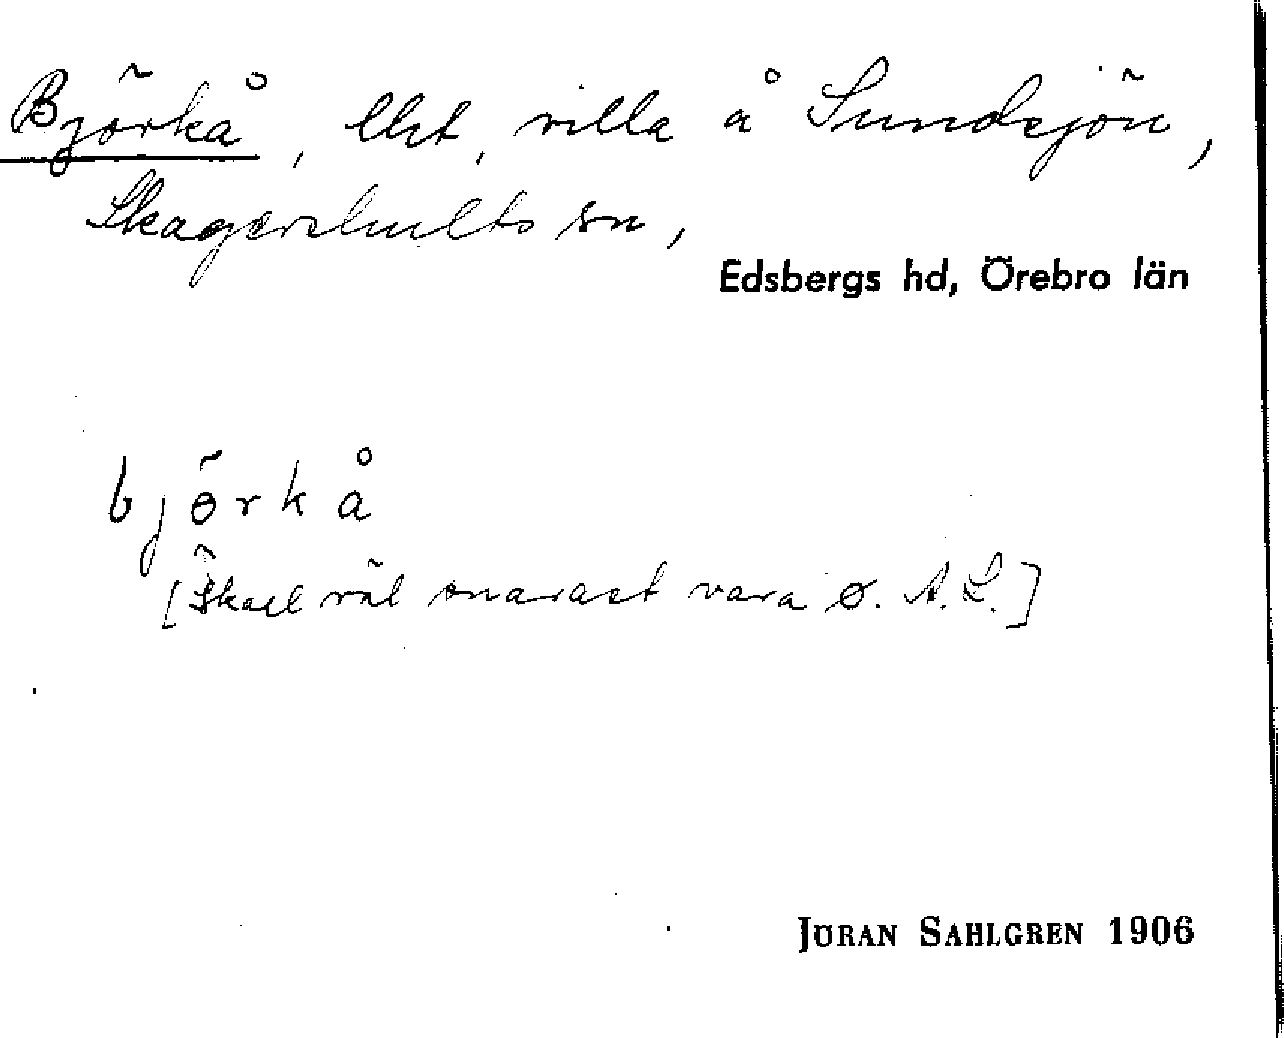 Björkå, lht, villa å Sundsjön,
Skagershults sn,
Edsbergs hd, Örebro län
björkå
[Skall väl snarast vara ø. A. L.]
JÖRAN SAHLGREN 1906